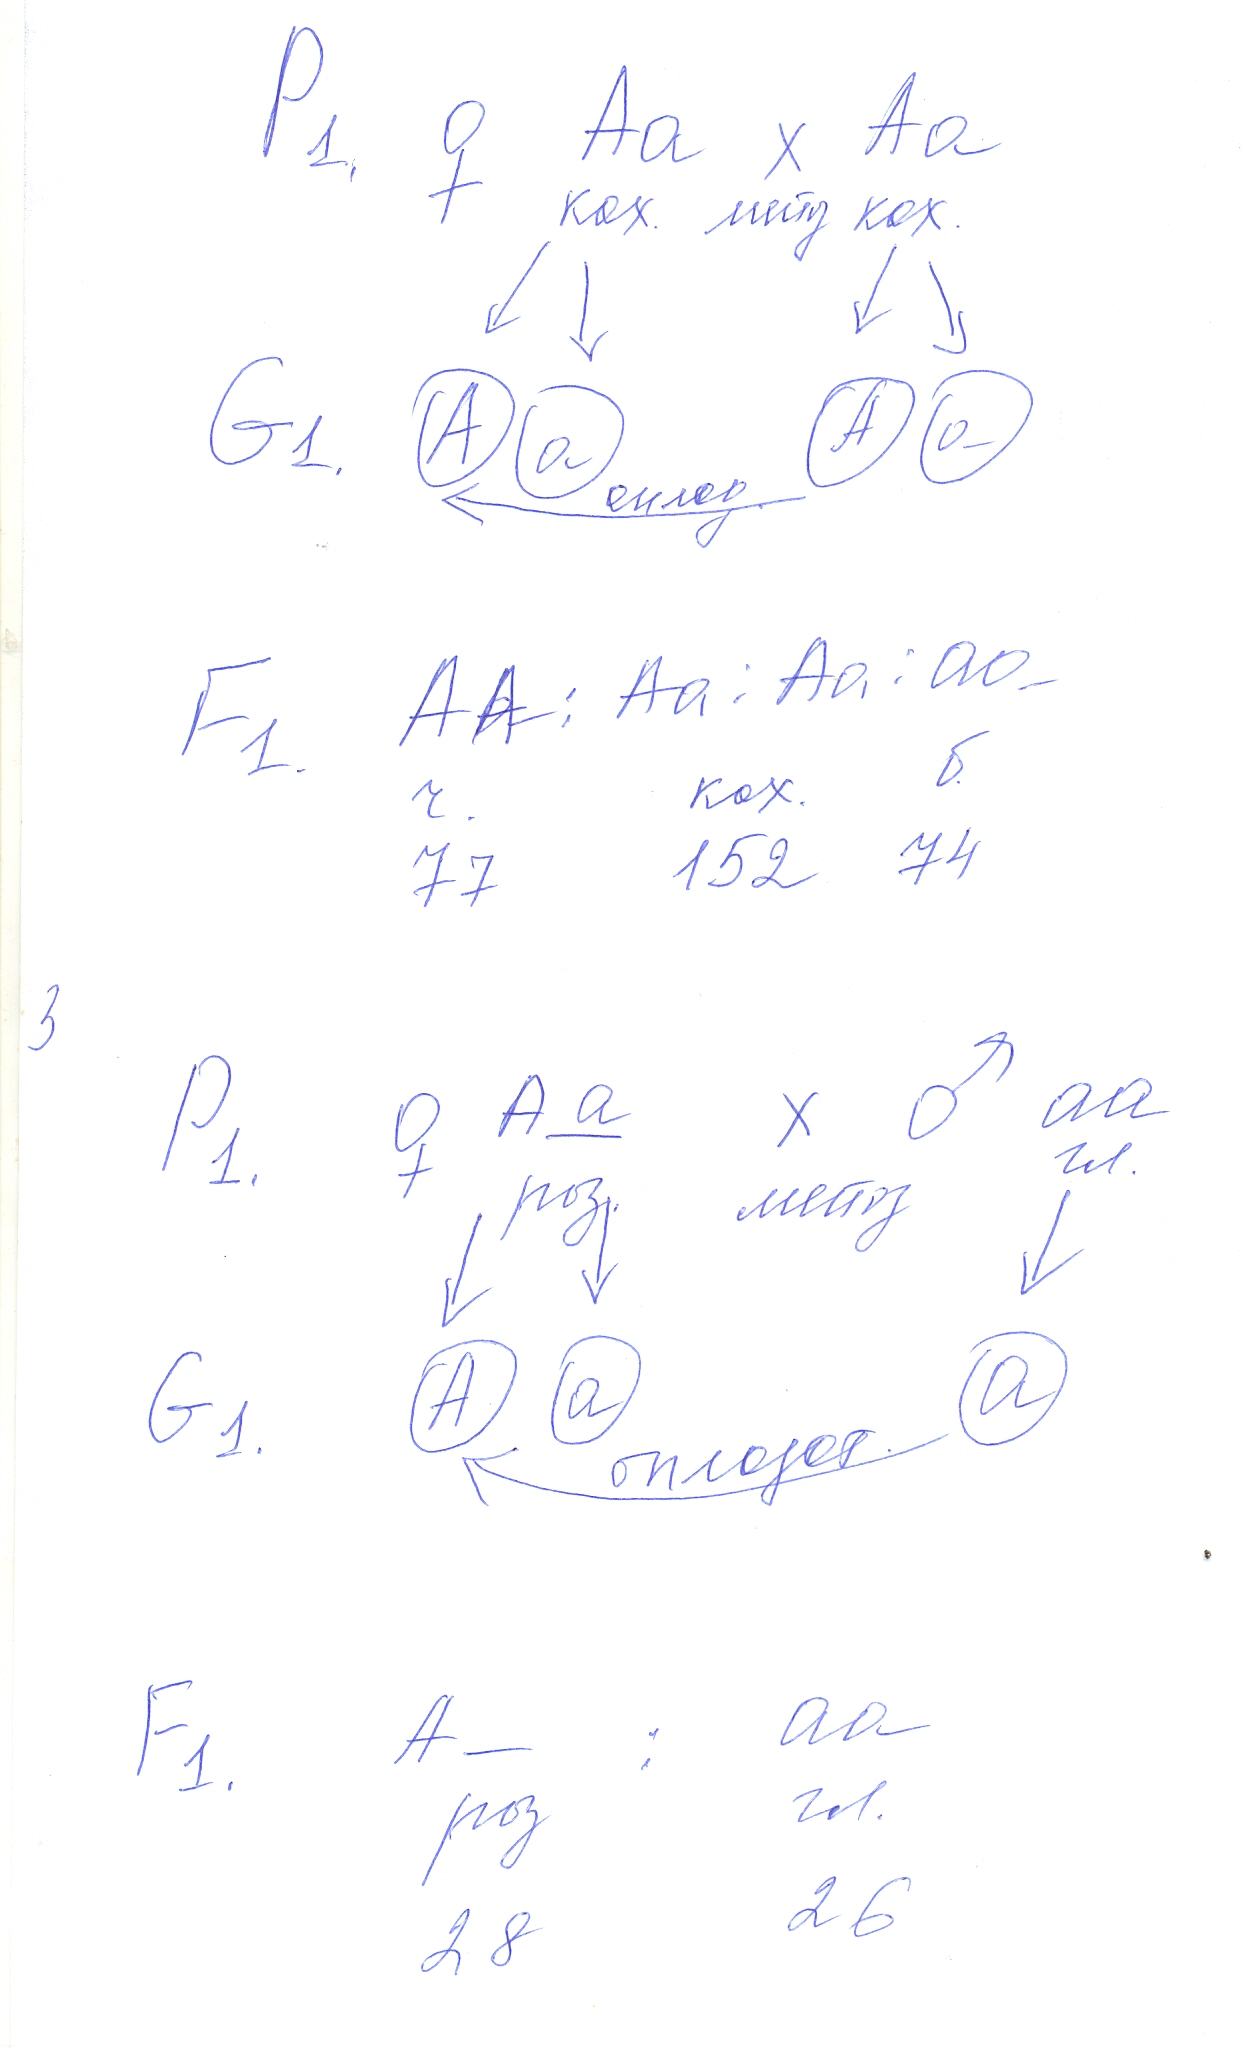 P1. ♀ Aa x Aa
кох. мейоз кох.
G1. A a A a
оплод.
F1. AA : Aa : Aa : aa
ч. кох. б.
77 152 74
3
P1. ♀ Aa x ♂ aa
роз. мейоз гл.
G1. A a a
оплодот.
F1. A_ : aa
роз гл.
28 26